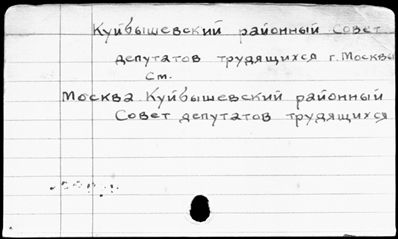 Куйбышевский районный Совет
депутатов трудящихся г. Москвы
См.
Москва. Куйбышевский районный
Совет депутатов трудящихся